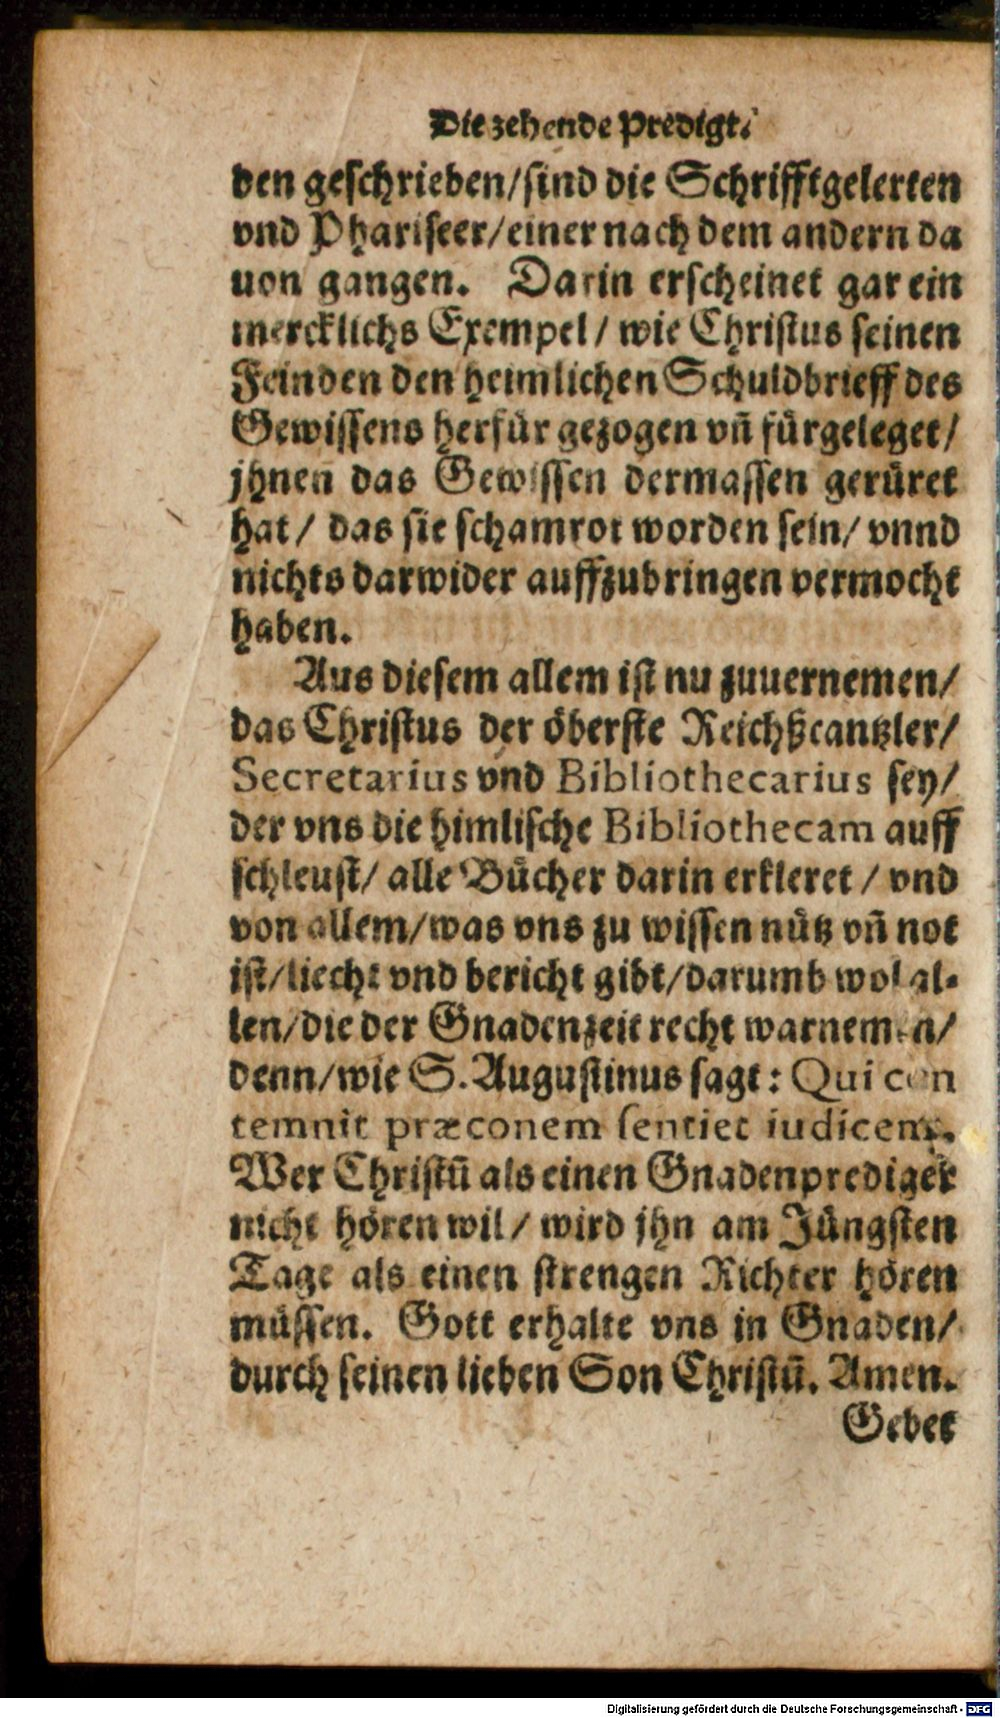 Die zehende Predigt.
den geschrieben/sind die Schrifftgelerten
vnd Phariseer/einer nach dem andern da
uon gangen. Darin erscheinet gar ein
mercklichs Exempel/ wie Christus seinen
Feinden den heimlichen Schuldbrieff des
Gewissens herfür gezogen vñ fürgeleget/
jhnen das Gewissen dermassen gerüret
hat/ das sie schamrot worden sein/ vnnd
nichts darwider auffzubringen vermocht
haben.
Aus diesem allem ist nu zuuernemen/
das Christus der öberste Reichßcantzler/
Secretarius vnd Bibliothecarius sey/
der vns die himlische Bibliothecam auff
schleust/ alle Bücher darin erkleret / vnd
von allem/was vns zu wissen nütz vñ not
ist/liecht vnd bericht gibt/darumb wol al-
len/die der Gnadenzeit recht warnemen/
denn/wie S. Augustinus sagt: Qui con
temnit præconem sentiet iudicem.
Wer Christū als einen Gnadenprediger
nicht hören wil/ wird jhn am Jüngsten
Tage als einen strengen Richter hören
müssen. Gott erhalte vns in Gnaden/
durch seinen lieben Son Christū. Amen.
Gebet
Digitalisierung gefördert durch die Deutsche Forschungsgemeinschaft - DFG